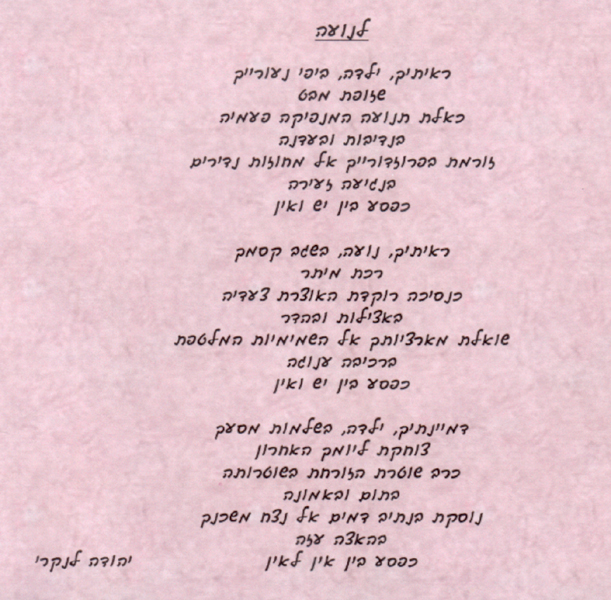 לנועה
ראיתיך, ילדה, ביפי נעורייך
שזופת מבט
כאלת תנועה המנפיקה פעמיה
בנדיבות ובעדנה
זורמת בפרוזדורייך אל מחוזות נדירים
בנגיעה זעירה
כפסע בין יש ואין
ראיתיך, נועה, בשגב קסמך
רכת מיתר
כנסיכה רוקדת האוצרת צעדיה
באצילות ובהדר
שואלת מארציותך אל השמימיות המלטפת
ברכיבה ענוגה
כפסע בין יש ואין
דמיינתיך, ילדה, בשלמות מסעך
צוחקת ליומך האחרון
כרב שוטרת הזורחת בשוטרותה
בתום ובאמונה
נוסקת בנתיב דמים אל נצח משכנך
בהאצה עזה
כפסע בין אין לאין
יהודה לנקרי